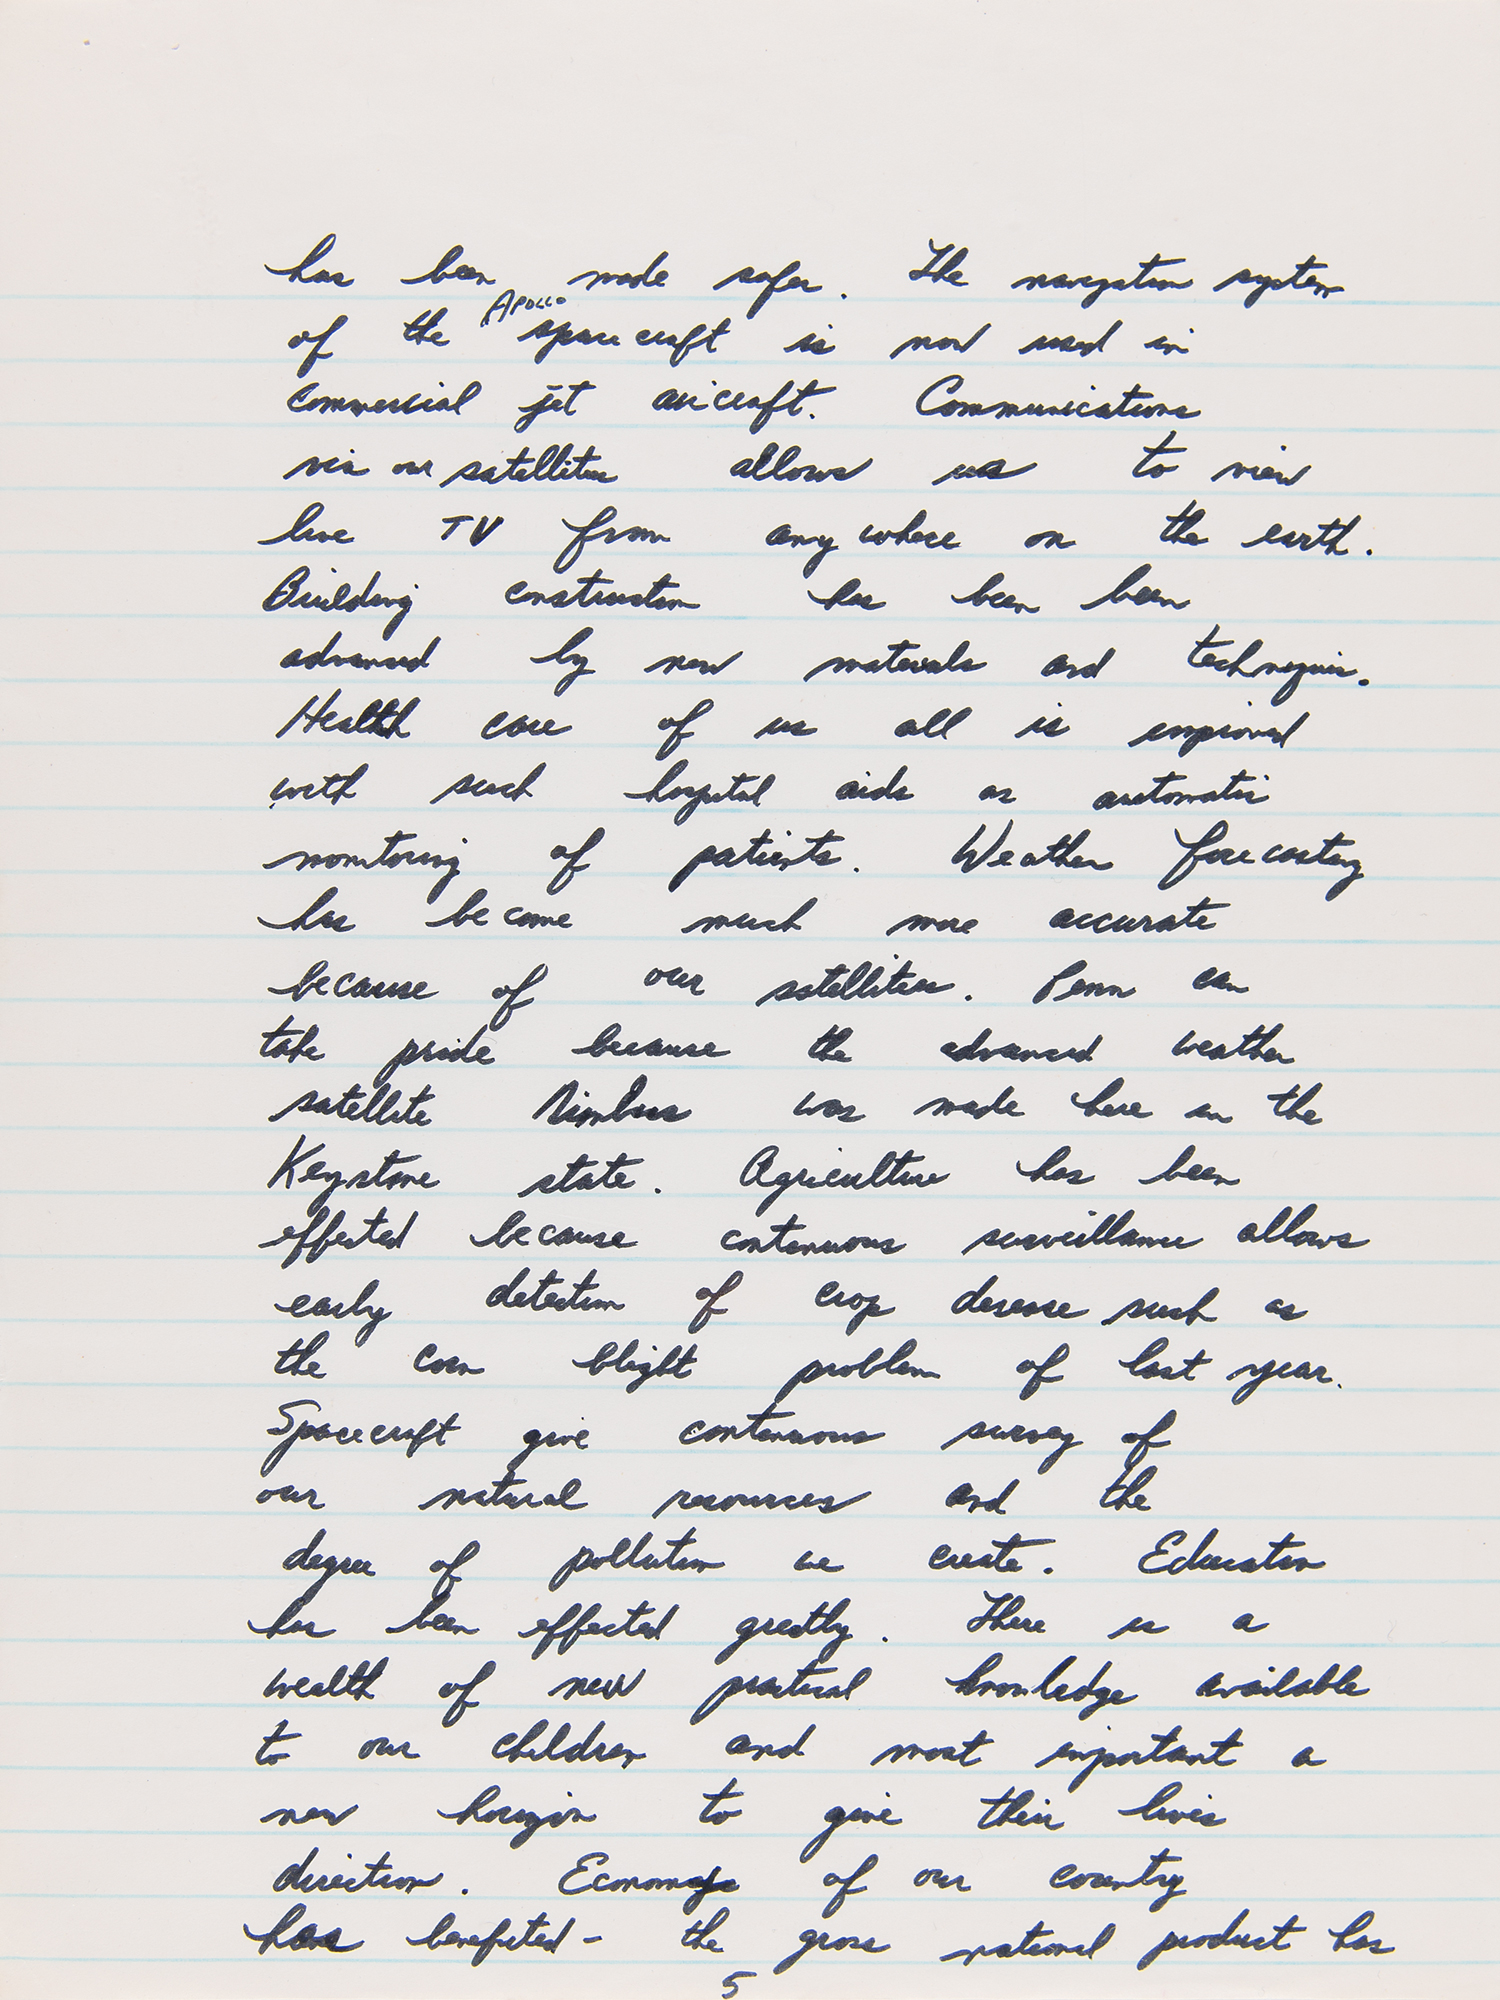 has been made safer. The navigation system
of the Apollo spacecraft is now used in
commercial jet aircraft. Communications
via our satellites allows us to view
live TV from anywhere on the earth.
Building construction has been been
advanced by new materials and techniques.
Health care of us all is improved
with such hospital aids as automatic
monitoring of patients. Weather forecasting
has become much more accurate
because of our satellites. Penn can
take pride because the advanced weather
satellite Nimbus was made here in the
Keystone state. Agriculture has been
effected because continuous surveillance allows
early detection of crop disease such as
the corn blight problem of last year.
Spacecraft give continuous survey of
our natural resources and the
degree of pollution we create. Education
has been effected greatly. There is a
wealth of new practical knowledge available
to our children and most important a
new horizon to give their lives
direction. Economy of our country
has benefited - the gross national product has
5